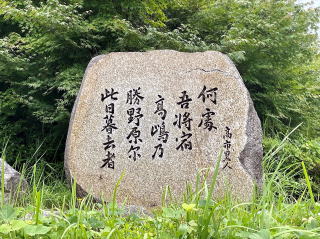 何處
吾将宿
高嶋乃
勝野原尓
此日暮去者
高市黒人